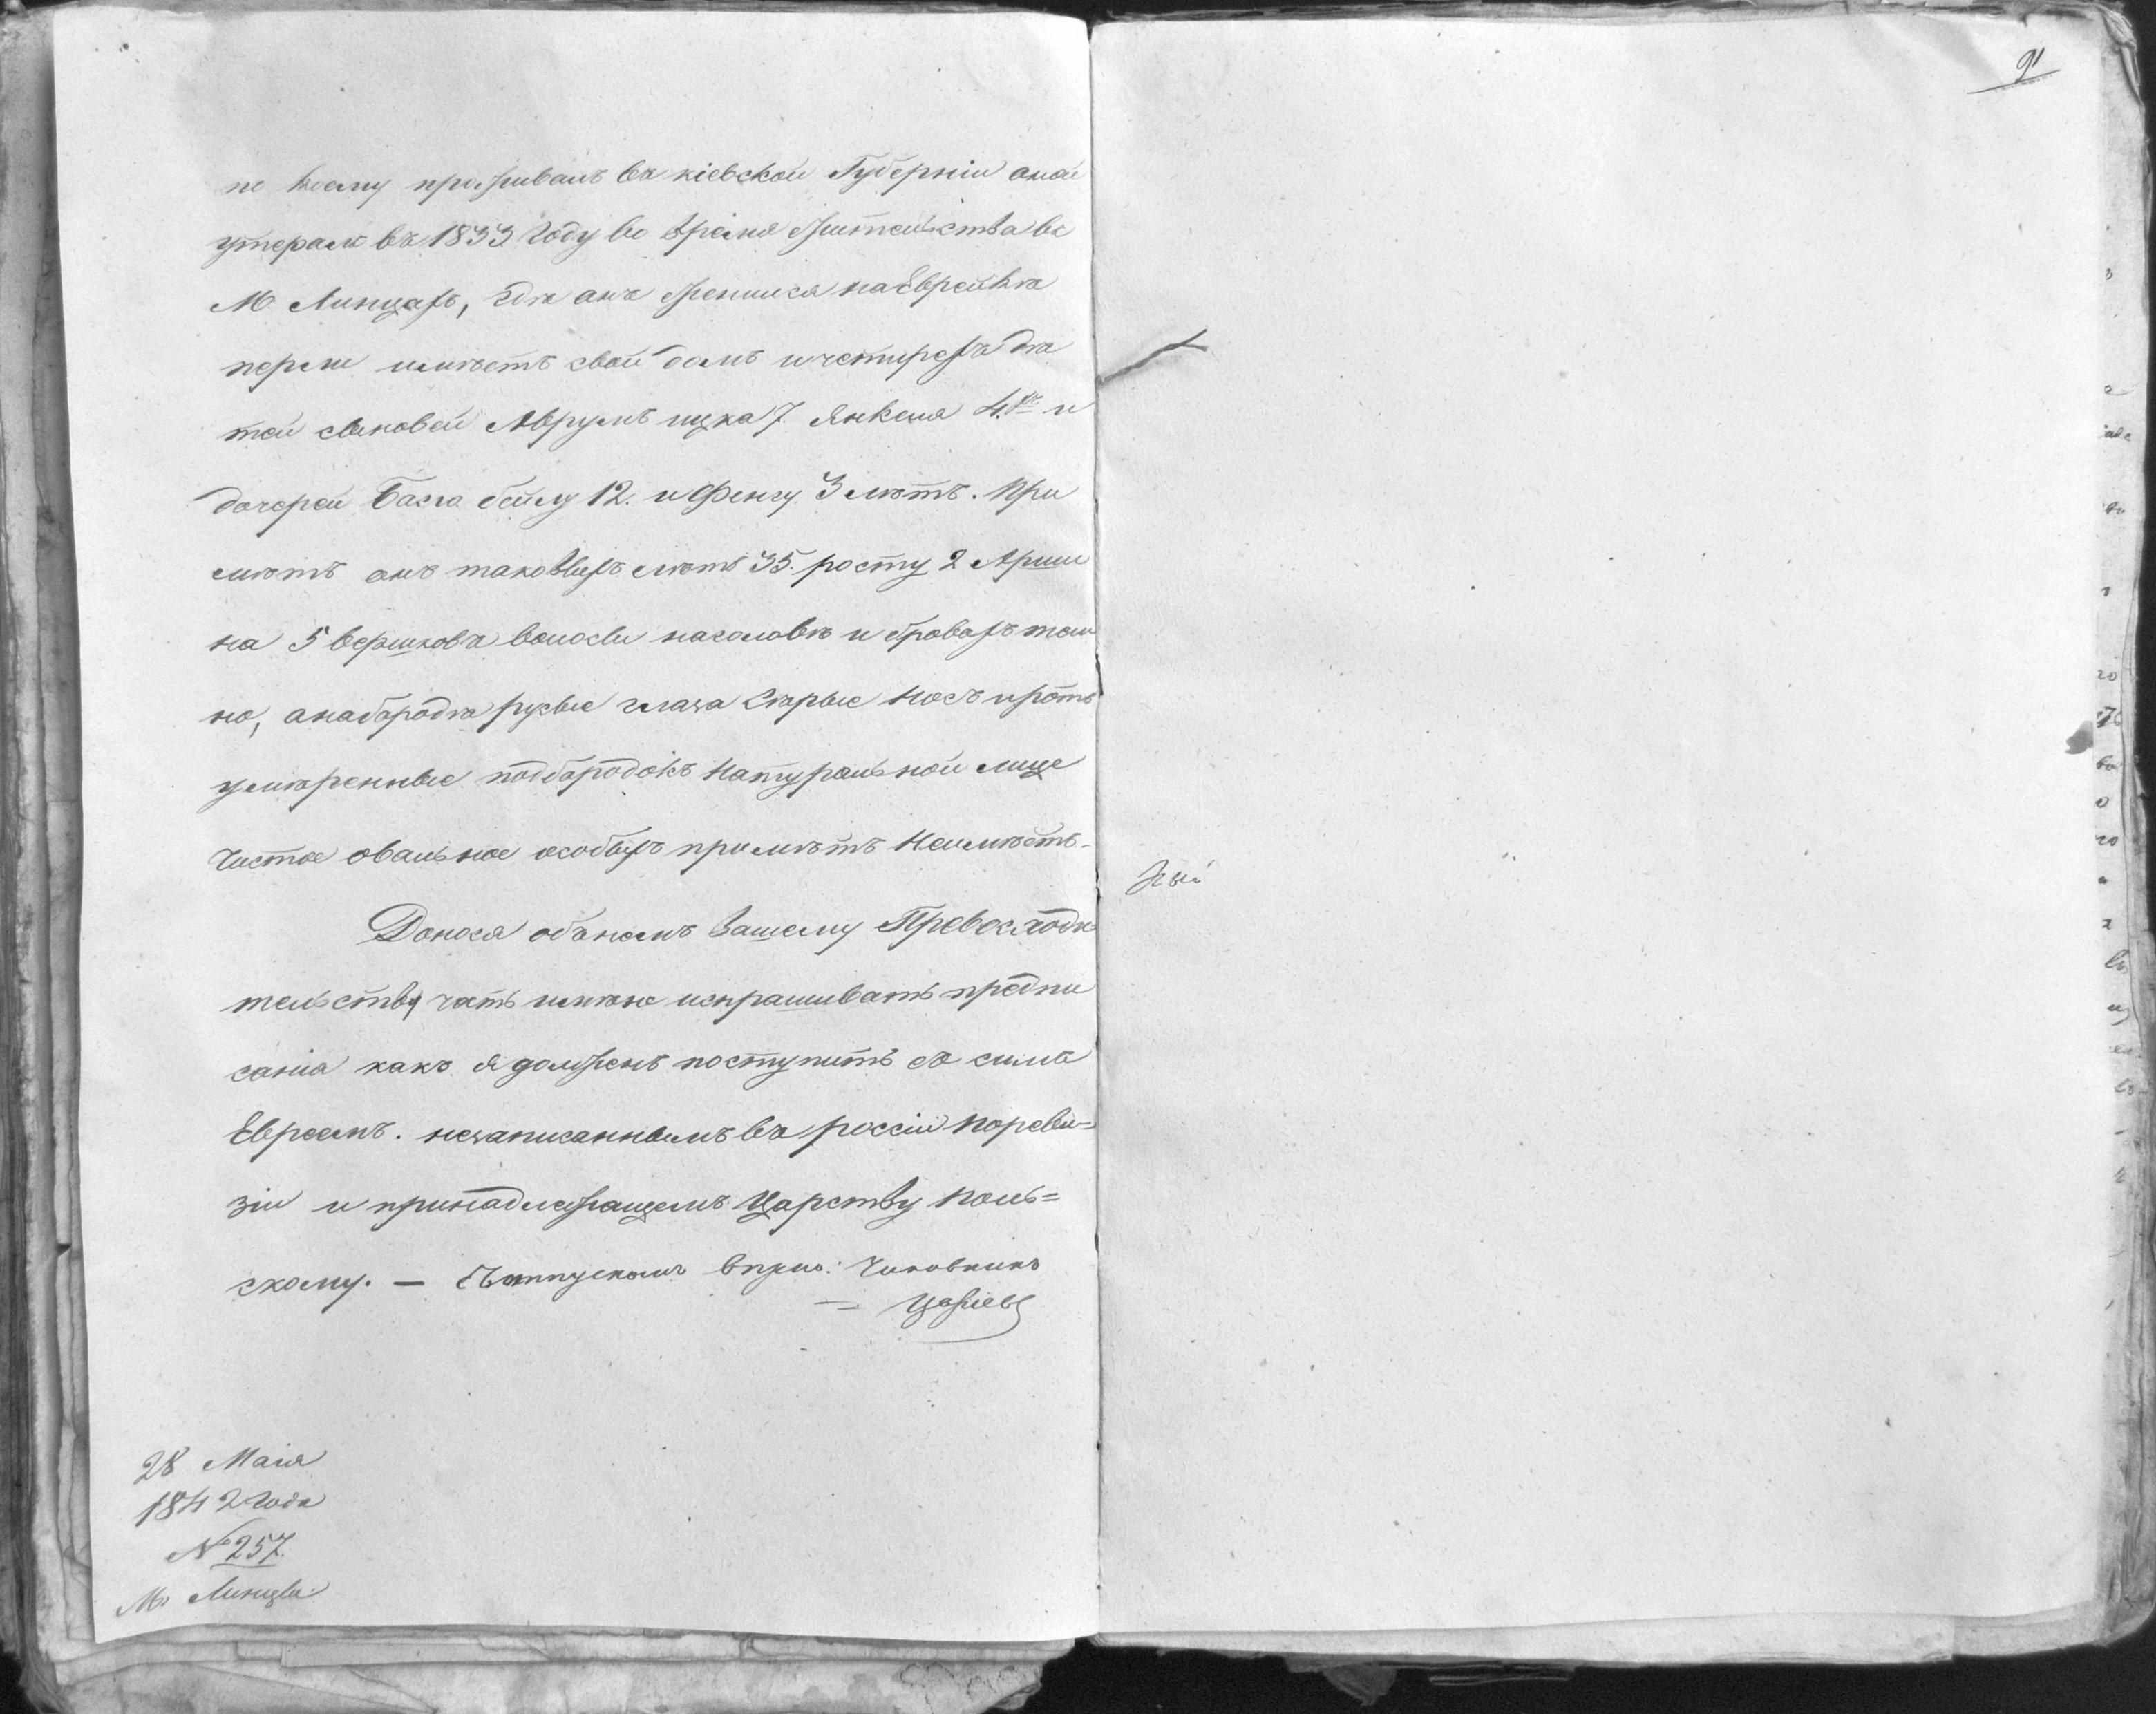 91
по коему проживалъ въ кіевской Губерніи оной
утералъ въ 1833 году во время жительства въ
М. Линцахъ, где онъ женился на Еврейкѣ
перли имѣетъ свой домъ и четырехъ дѣ
тей сыновей Аврумъ ицка 7. Янкеля 4.хъ и
дочерей Бася бейлу 12. и Фейгу 3 лѣтъ. При
мѣтъ онъ таковыхъ лѣтъ 35. росту 2 Арши
на 5 вершковъ волосы наголовѣ и бровахъ тем
но, анабородѣ русые глаза Сѣрые Носъ иротъ
умѣренные подбородокъ Натуральной лице
Чистое овальное особыхъ примѣтъ Неимѣетъ.
Донося обономъ Вашему Превосходи
тельству чать имѣю испрашивать предпи
санія какъ я долженъ поступить съ симъ
Евреемъ. незаписаннымъ въ россіи поревы=
зіи и принадлежащемъ Царству поль=
скому. — Чиновникъ
28 Маія
1842 Года
№ 257.
М. Линцы